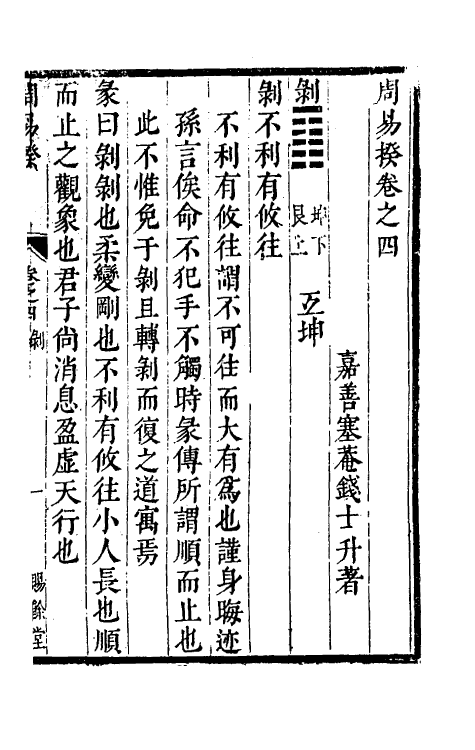 周易揆卷之四
嘉善塞菴錢士升著
剝 坤下艮上 互坤
剝不利有攸往
不利有攸往謂不可往而大有為也謹身晦迹
孫言俟命不犯手不觸時彖傳所謂順而止也
此不惟免于剝且轉剝而復之道寓焉
彖曰剝剝也柔變剛也不利有攸往小人長也順
而止之觀象也君子尚消息盈虛天行也
周易揆 卷之四 剝 一 賜餘堂